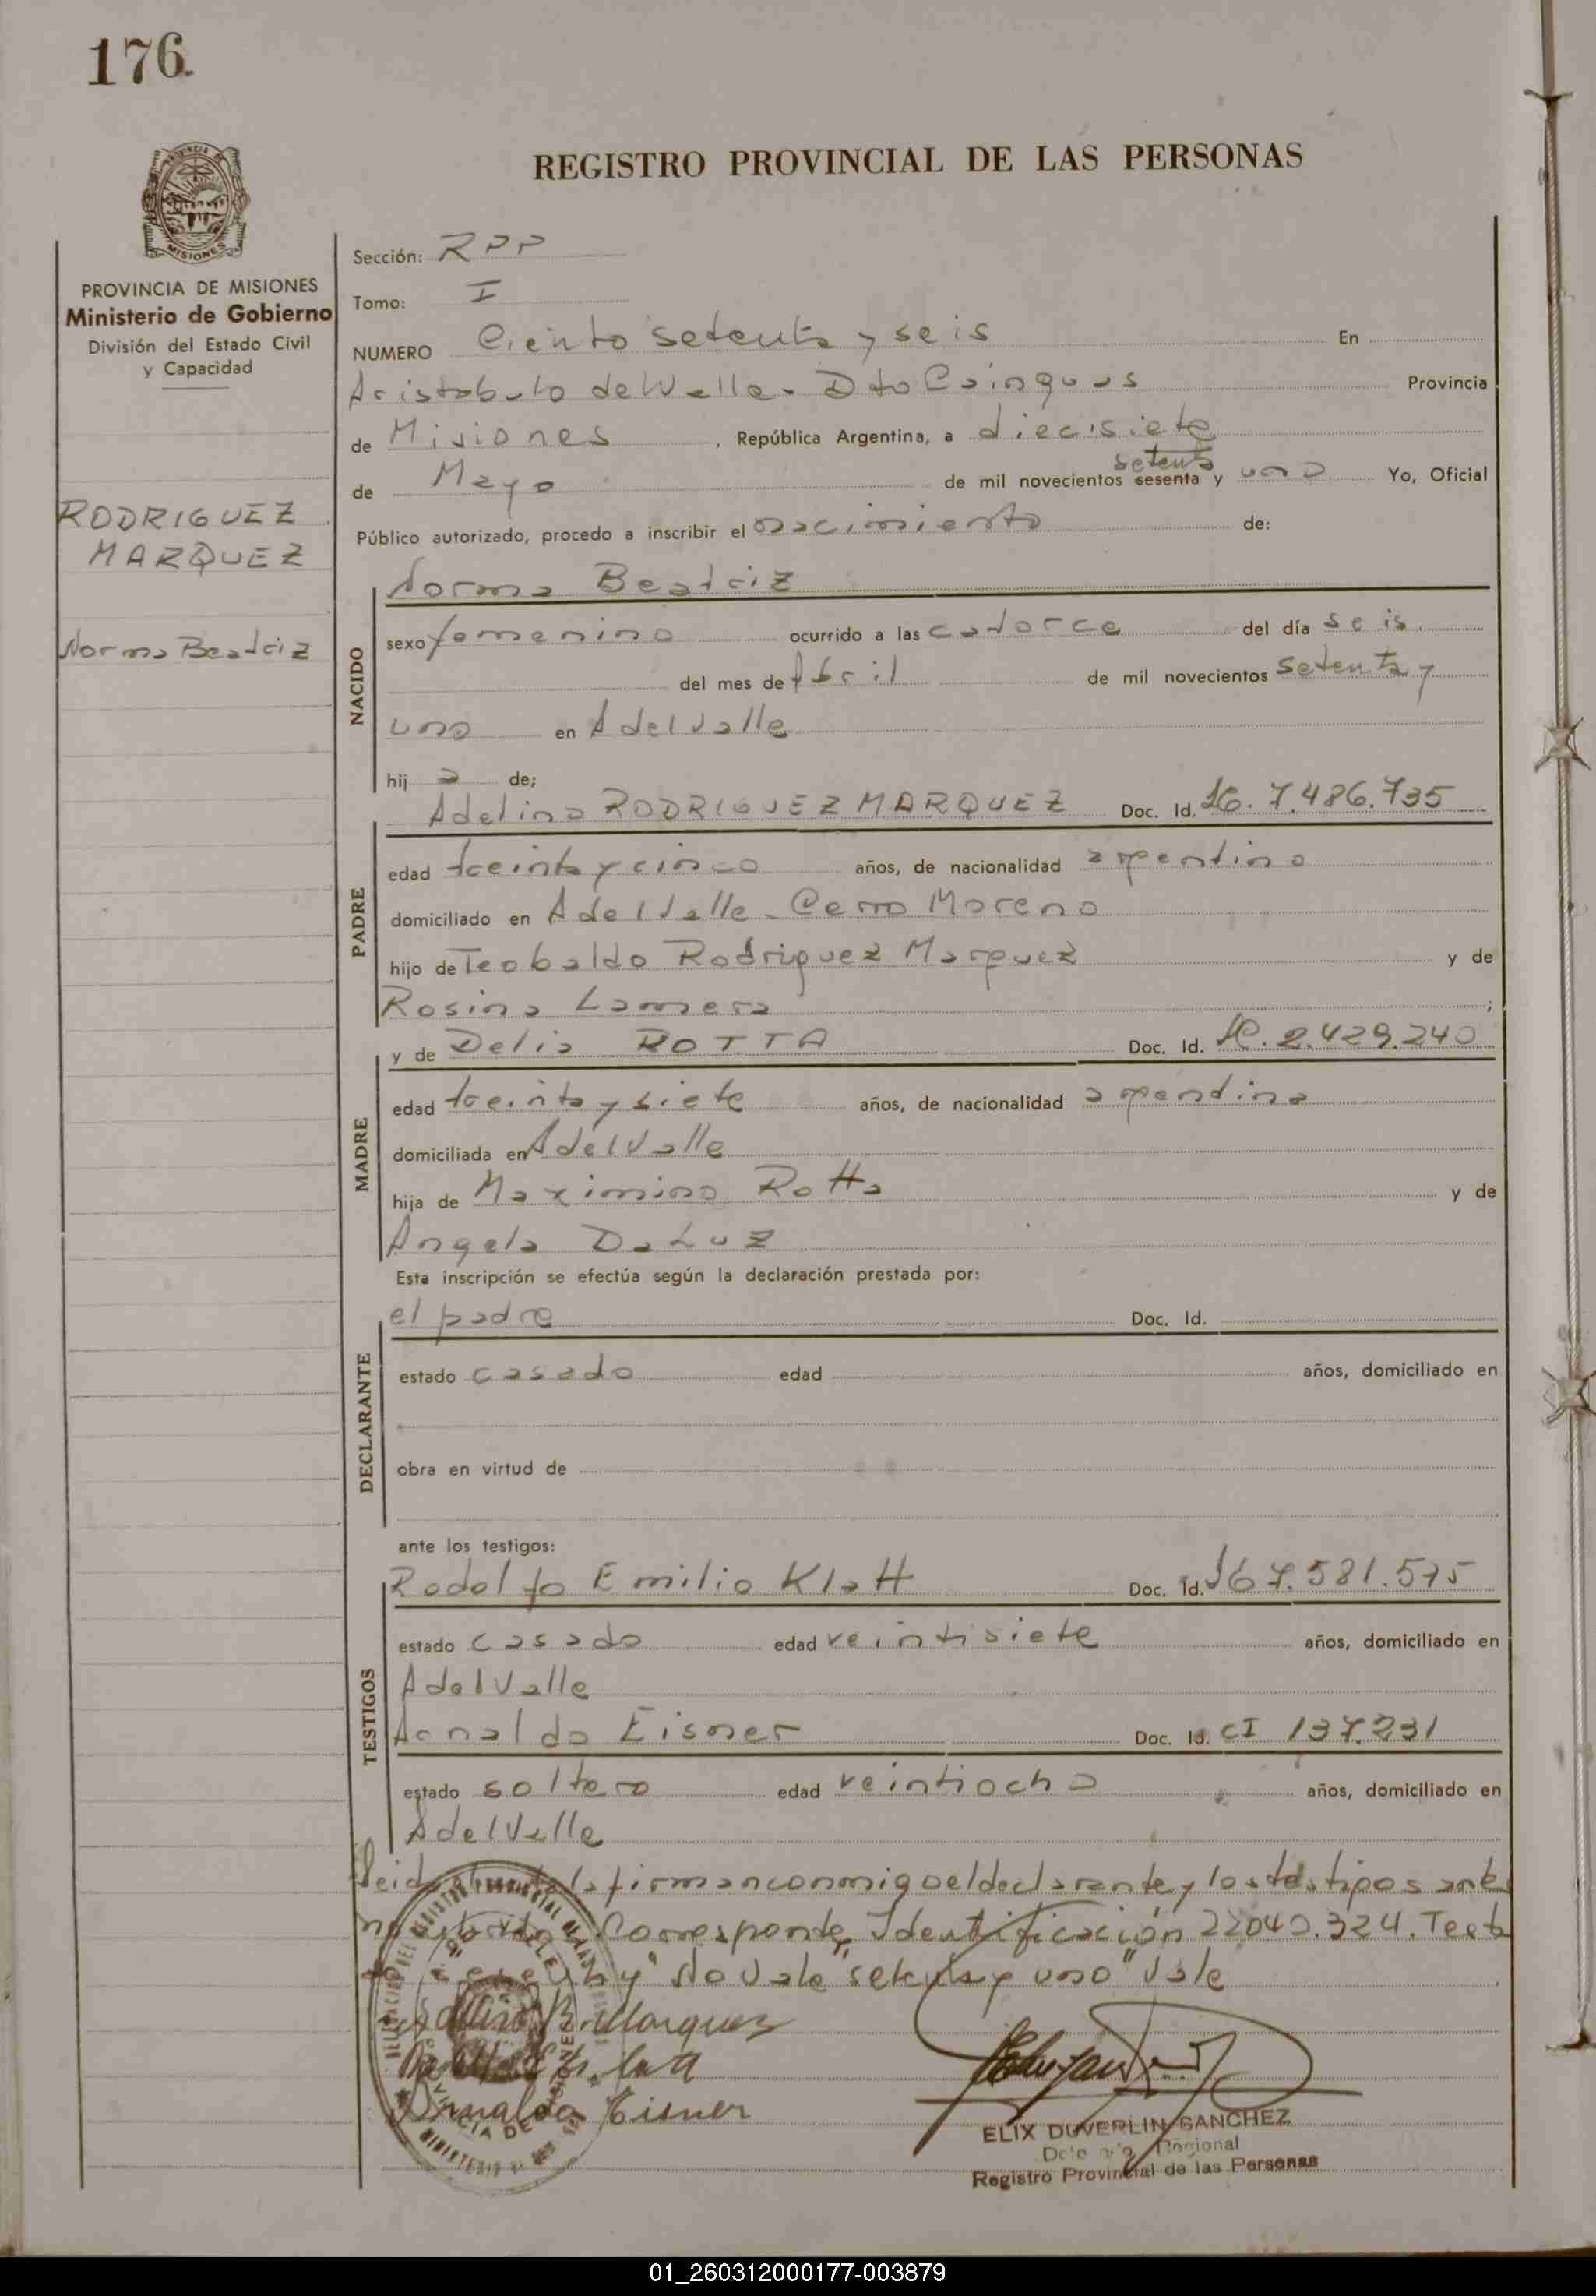 176.
REGISTRO PROVINCIAL DE LAS PERSONAS
MISIONES
PROVINCIA DE MISIONES
Ministerio de Gobierno
División del Estado Civil
y Capacidad
RODRIGUEZ
MARQUEZ
Norma Beatriz
Sección: RPP
Tomo: I
NUMERO Ciento setenta y seis En
Aristobulo del Valle - Dto Cainguas Provincia
de Misiones, República Argentina, a diecisiete
setenta
de Mayo de mil novecientos sesenta y uno Yo, Oficial
Público autorizado, procedo a inscribir el nacimiento de:
Norma Beatriz
NACIDO
sexo femenino ocurrido a las catorce del día seis
del mes de Abril de mil novecientos setenta y
uno en A del Valle
hij a de;
Adelino RODRIGUEZ MARQUEZ Doc. Id. 7.486.735
PADRE
edad treinta y cinco años, de nacionalidad argentino
domiciliado en A del Valle - Cerro Moreno
hijo de Teobaldo Rodriguez Marquez y de
Rosina Lamera;
y de Delia ROTTA Doc. Id. 2.429.240
MADRE
edad treinta y siete años, de nacionalidad argentina
domiciliada en A del Valle
hija de Maximino Rotta y de
Angela Da Luz
Esta inscripción se efectúa según la declaración prestada por:
el padre Doc. Id.
DECLARANTE
estado casado edad años, domiciliado en
obra en virtud de
ante los testigos:
Rodolfo Emilio Klatt Doc. Id. 7.581.575
TESTIGOS
estado casado edad veintisiete años, domiciliado en
A del Valle
Arnaldo Eisner Doc. Id. CI 137.231
estado soltero edad veintiocho años, domiciliado en
A del Valle
Leida el acta la firman conmigo el declarante y los testigos antes
Corresponde Identificación 22040.324. Testado
y" No Vale "setenta y uno" Vale
Marquez
Arnaldo Eisner
ELIX DUVERLIN SANCHEZ
Regional
Registro Provincial de las Personas
01_260312000177-003879